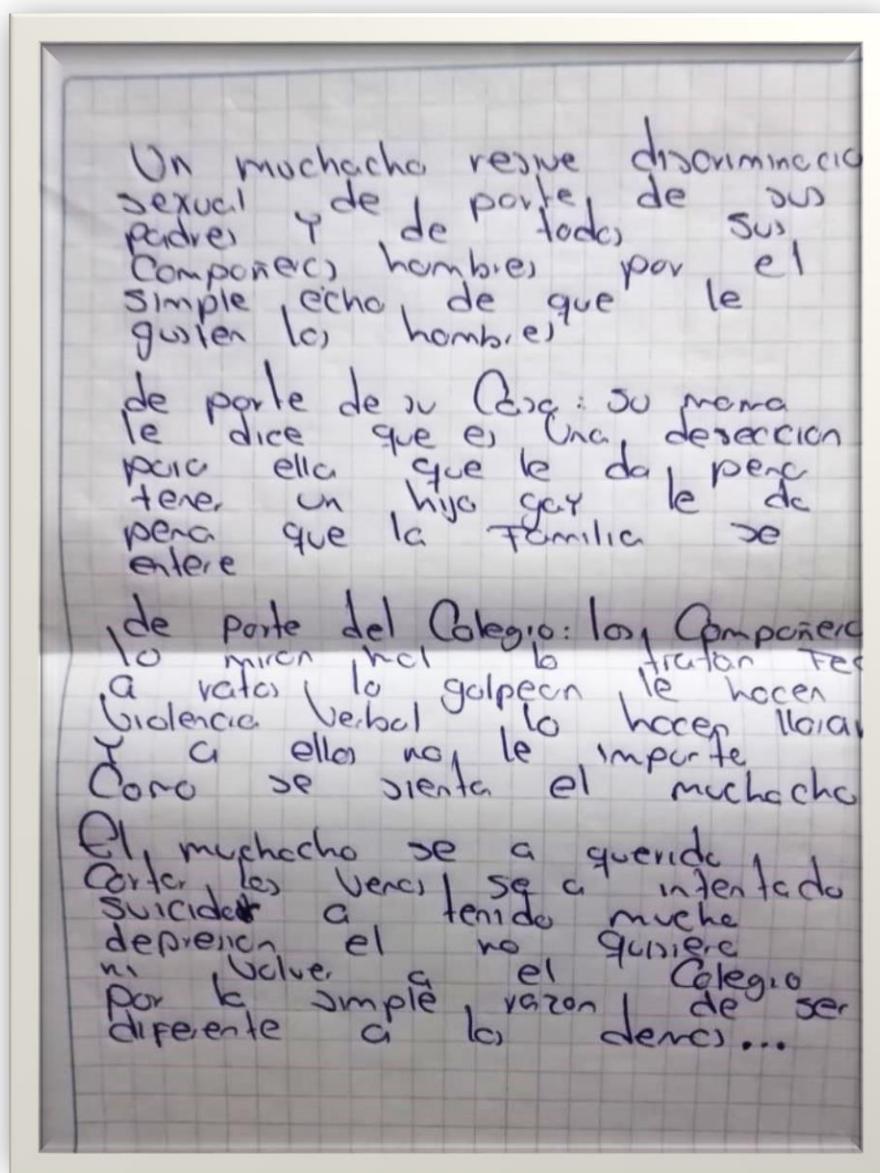 Un muchacho resive discriminacio
sexual de parte de sus
padres y de todos sus
Compañeros hombres por el
simple echo de que le
gusten los hombres
de parte de su Casa: su mama
le dice que es Una deseccion
para ella que le da pena
tener un hijo gay le da
pena que la Familia se
entere
de parte del Colegio: los Compañero
lo miran mal lo tratan Feo
a ratos lo golpean le hacen
Violencia Verbal lo hacen llorar
Y a ellos no le importe
Como se sienta el muchacho
El muchacho se a querido
Cortar las Venas se a intentado
suicidar a tenido mucha
depresion el no quisiera
ni Volver a el Colegio
Por la simple razon de ser
diferente a los demas...